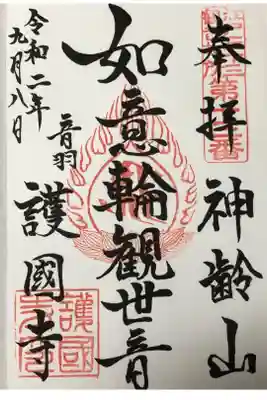 奉拝
神齢山
如意輪観世音
音羽
護國寺
令和二年
九月八日
護國
寺